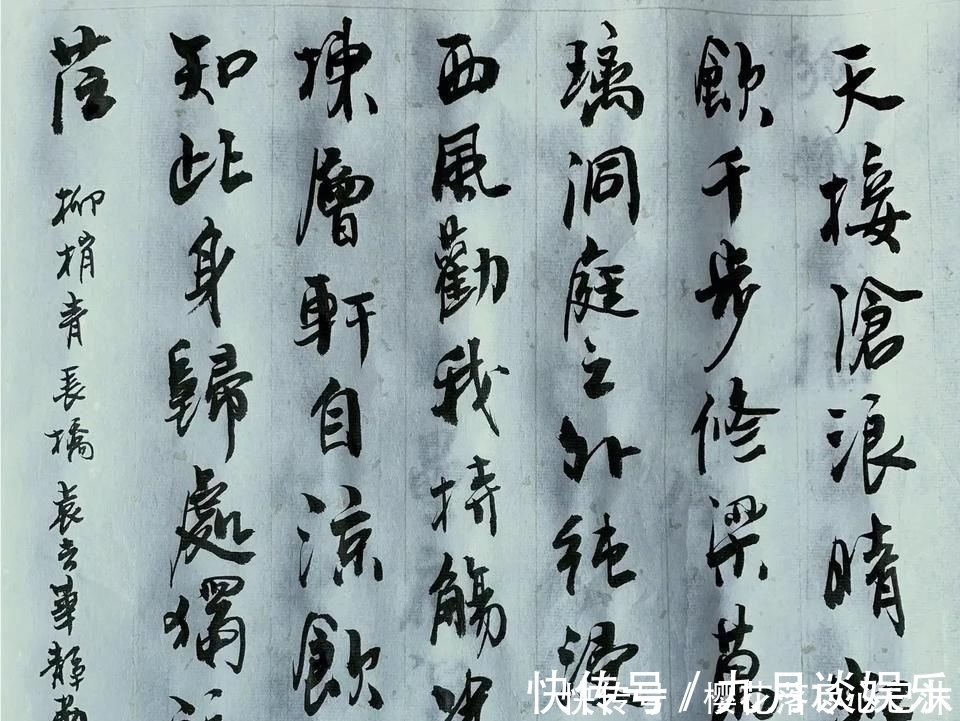 天接滄浪晴
飲千步修梁萬
璃洞庭之外純浸
西風勸我持觴況
棟層軒自涼飲
知此身歸處獨
茫
柳梢青長橋袁去華靜
快传号/九月谈娱乐